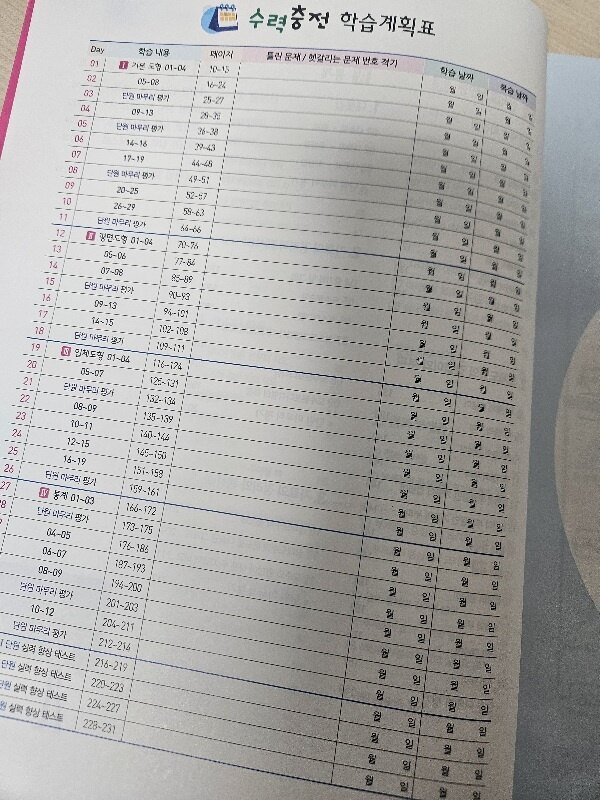 수력충전 학습계획표
Day 학습 내용 페이지 틀린 문제 / 헷갈리는 문제 번호 적기 학습 날짜 학습 날짜
01 I 기본 도형 01~04 10~15 월 일 월 일
02 05~08 16~24 월 일 월 일
03 단원 마무리 평가 25~27 월 일 월 일
04 09~13 28~35 월 일 월 일
05 단원 마무리 평가 36~38 월 일 월 일
06 14~16 39~43 월 일 월 일
07 17~19 44~48 월 일 월 일
08 단원 마무리 평가 49~51 월 일 월 일
09 20~25 52~57 월 일 월 일
10 26~29 58~63 월 일 월 일
11 단원 마무리 평가 64~66 월 일 월 일
12 II 평면도형 01~04 70~76 월 일 월 일
13 05~06 77~84 월 일 월 일
14 07~08 85~89 월 일 월 일
15 단원 마무리 평가 90~93 월 일 월 일
16 09~13 94~101 월 일 월 일
17 14~15 102~108 월 일 월 일
18 단원 마무리 평가 109~111 월 일 월 일
19 III 입체도형 01~04 116~124 월 일 월 일
20 05~07 125~131 월 일 월 일
21 단원 마무리 평가 132~134 월 일 월 일
22 08~09 135~139 월 일 월 일
23 10~11 140~144 월 일 월 일
24 12~15 145~150 월 일 월 일
25 16~19 151~158 월 일 월 일
26 단원 마무리 평가 159~161 월 일 월 일
27 IV 통계 01~03 166~172 월 일 월 일
단원 마무리 평가 173~175 월 일 월 일
04~05 176~186 월 일 월 일
06~07 187~193 월 일 월 일
08~09 194~200 월 일 월 일
단원 마무리 평가 201~203 월 일 월 일
10~12 204~211 월 일 월 일
단원 마무리 평가 212~214 월 일 월 일
단원 실력 향상 테스트 216~219 월 일 월 일
단원 실력 향상 테스트 220~223 월 일 월 일
단원 실력 향상 테스트 224~227 월 일 월 일
단원 실력 향상 테스트 228~231 월 일 월 일